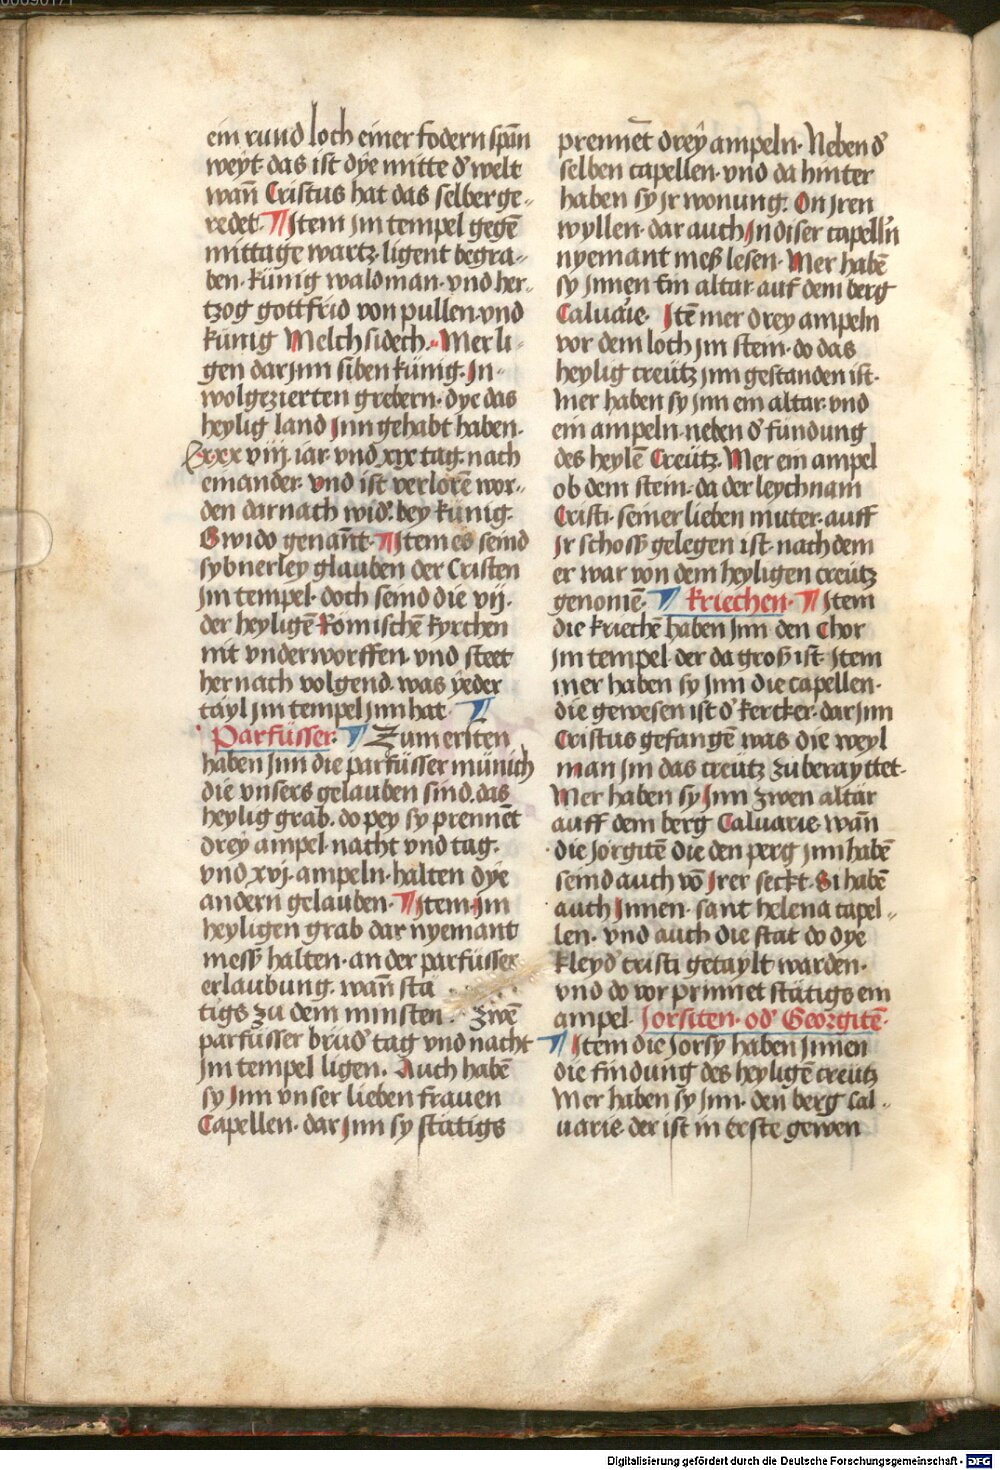 ein rund loch einer fodern span̄
weyt· das ist dÿe mitte d᷑ welt
wan̄ Cristus hat das selber ge-
redet· ¶ Jtem jm tempel gegē
mittage wartz· ligent begra-
ben· künig waldman· vnd her-
tzog gottfrid von pullen· vnd
künig Melchsidech· Mer li-
gen darjnn siben künig· Jn
wolgezierten grebern· dye das
heylig land Jnn gehabt haben·
Lxxx viij iar· vnd xix tag· nach
einander· vnd ist verlorē wor-
den darnach wid᷑· bey künig·
Gwido genan̄t· ¶ Jtem es seind
sybnerley glauben der Cristen
jm tempel· doch seind die vij·
der heyligē Römischē kyrchen
nit vnderworffen· vnd steet
hernach volgend· was ÿeder
tayl jm tempel jnn hat· ¶
Parfüsser· ¶ Zum ersten
haben Jnn die parfüsser münich
die vnsers gelauben sind· das
heylig grab· do pey sy prennēt
drey ampel· nacht vnd tag·
vnd xvj· ampeln· halten dÿe
andern gelauben· ¶ Jtem Jm
heyligen grab dar nyemant
mess halten· an der parfüsser
erlaubung· wan̄ stä
tigs zu dem minsten zwē
parfüsser brüd᷑ tag vnd nacht
jm tempel ligen· Auch habē
sy Jnn vnser lieben frauen
Capellen· dar Jnn sy stätigs
prennēt dreÿ ampeln· Neben d᷑
selben capellen· vnd da hinter
haben sy jr wonung· On jren
wyllen· dar auch Jn diser capell'n
nyemant meß lesen· Mer habē
sy Jnnen ein altar· auf dem berg
Caluarie· Jtē mer drey ampeln
vor dem loch jm stein· do das
heylig creütz jnn gestanden ist·
mer haben sy jnn ein altar· vnd
ein ampeln· neben d᷑ fündung
des heylē Creütz· Mer ein ampel
ob dem stein· da der leychnam
Cristi· seiner lieben muter· auff
Jr schoss gelegen ist· nach dem
er war von dem heyligen creütz
genomē· ¶ kriechen· ¶ Jtem
die kriechē haben Jnn den Chor
jm tempel der da groß ist· Jtem
mer haben sy Jnn die capellen·
die gewesen ist d᷑ kercker· dar jnn
Cristus gefangē was die weyl
man jm das creütz zu beraÿttet·
Mer haben sy Jnn zwen altar
auff dem berg Caluarie· wan̄
die Jorgitē die den perg jnn habē
seind auch vō Jrer seckt· Si habē
auch Jnnen· sant helena capel-
len· vnd auch die stat do dye
kleyd᷑ cristi getaylt warden·
vnd do vor prinnet stätigs ein
ampel· Jorsiten· od᷑ Georgitē·
¶ Jtem die Jorsy haben Jnnen
die findung des heyligē creütz
Mer haben sy Jnn· den berg Cal-
uarie· der ist in erste gewen
Digitalisierung gefördert durch die Deutsche Forschungsgemeinschaft - DFG